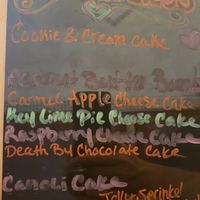 Cookie & Cream Cake
Peanut Butter Bomb
Carmel Apple Cheese Cake
Key Lime Pie Cheese Cake
Raspberry Cheese Cake
Death By Chocolate Cake
Canoli Cake